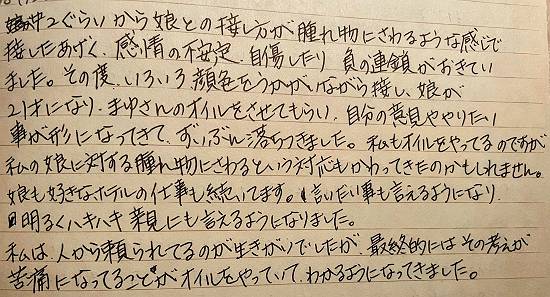 中2ぐらいから娘との接し方が腫れ物にさわるような感じで
接したあげく、感情の不安定、自傷したり 負の連鎖がおきてい
ました。その度、いろいろ顔色をうかがいながら接し、娘が
21才になり、まゆさんのオイルをさせてもらい、自分の意見ややりたい
事が形になってきて、ずいぶん落ちつきました。私もオイルをやってるのですが
私の娘に対する腫れ物にさわるという対応もかわってきたのかもしれません。
娘も好きなホテルの仕事も続いてます。言いたい事も言えるようになり、
明るくハキハキ 親にも言えるようになりました。
私は、人から頼られてるのが生きがいでしたが、最終的にはその考えが
苦痛になってることがオイルをやっていて、わかるようになってきました。